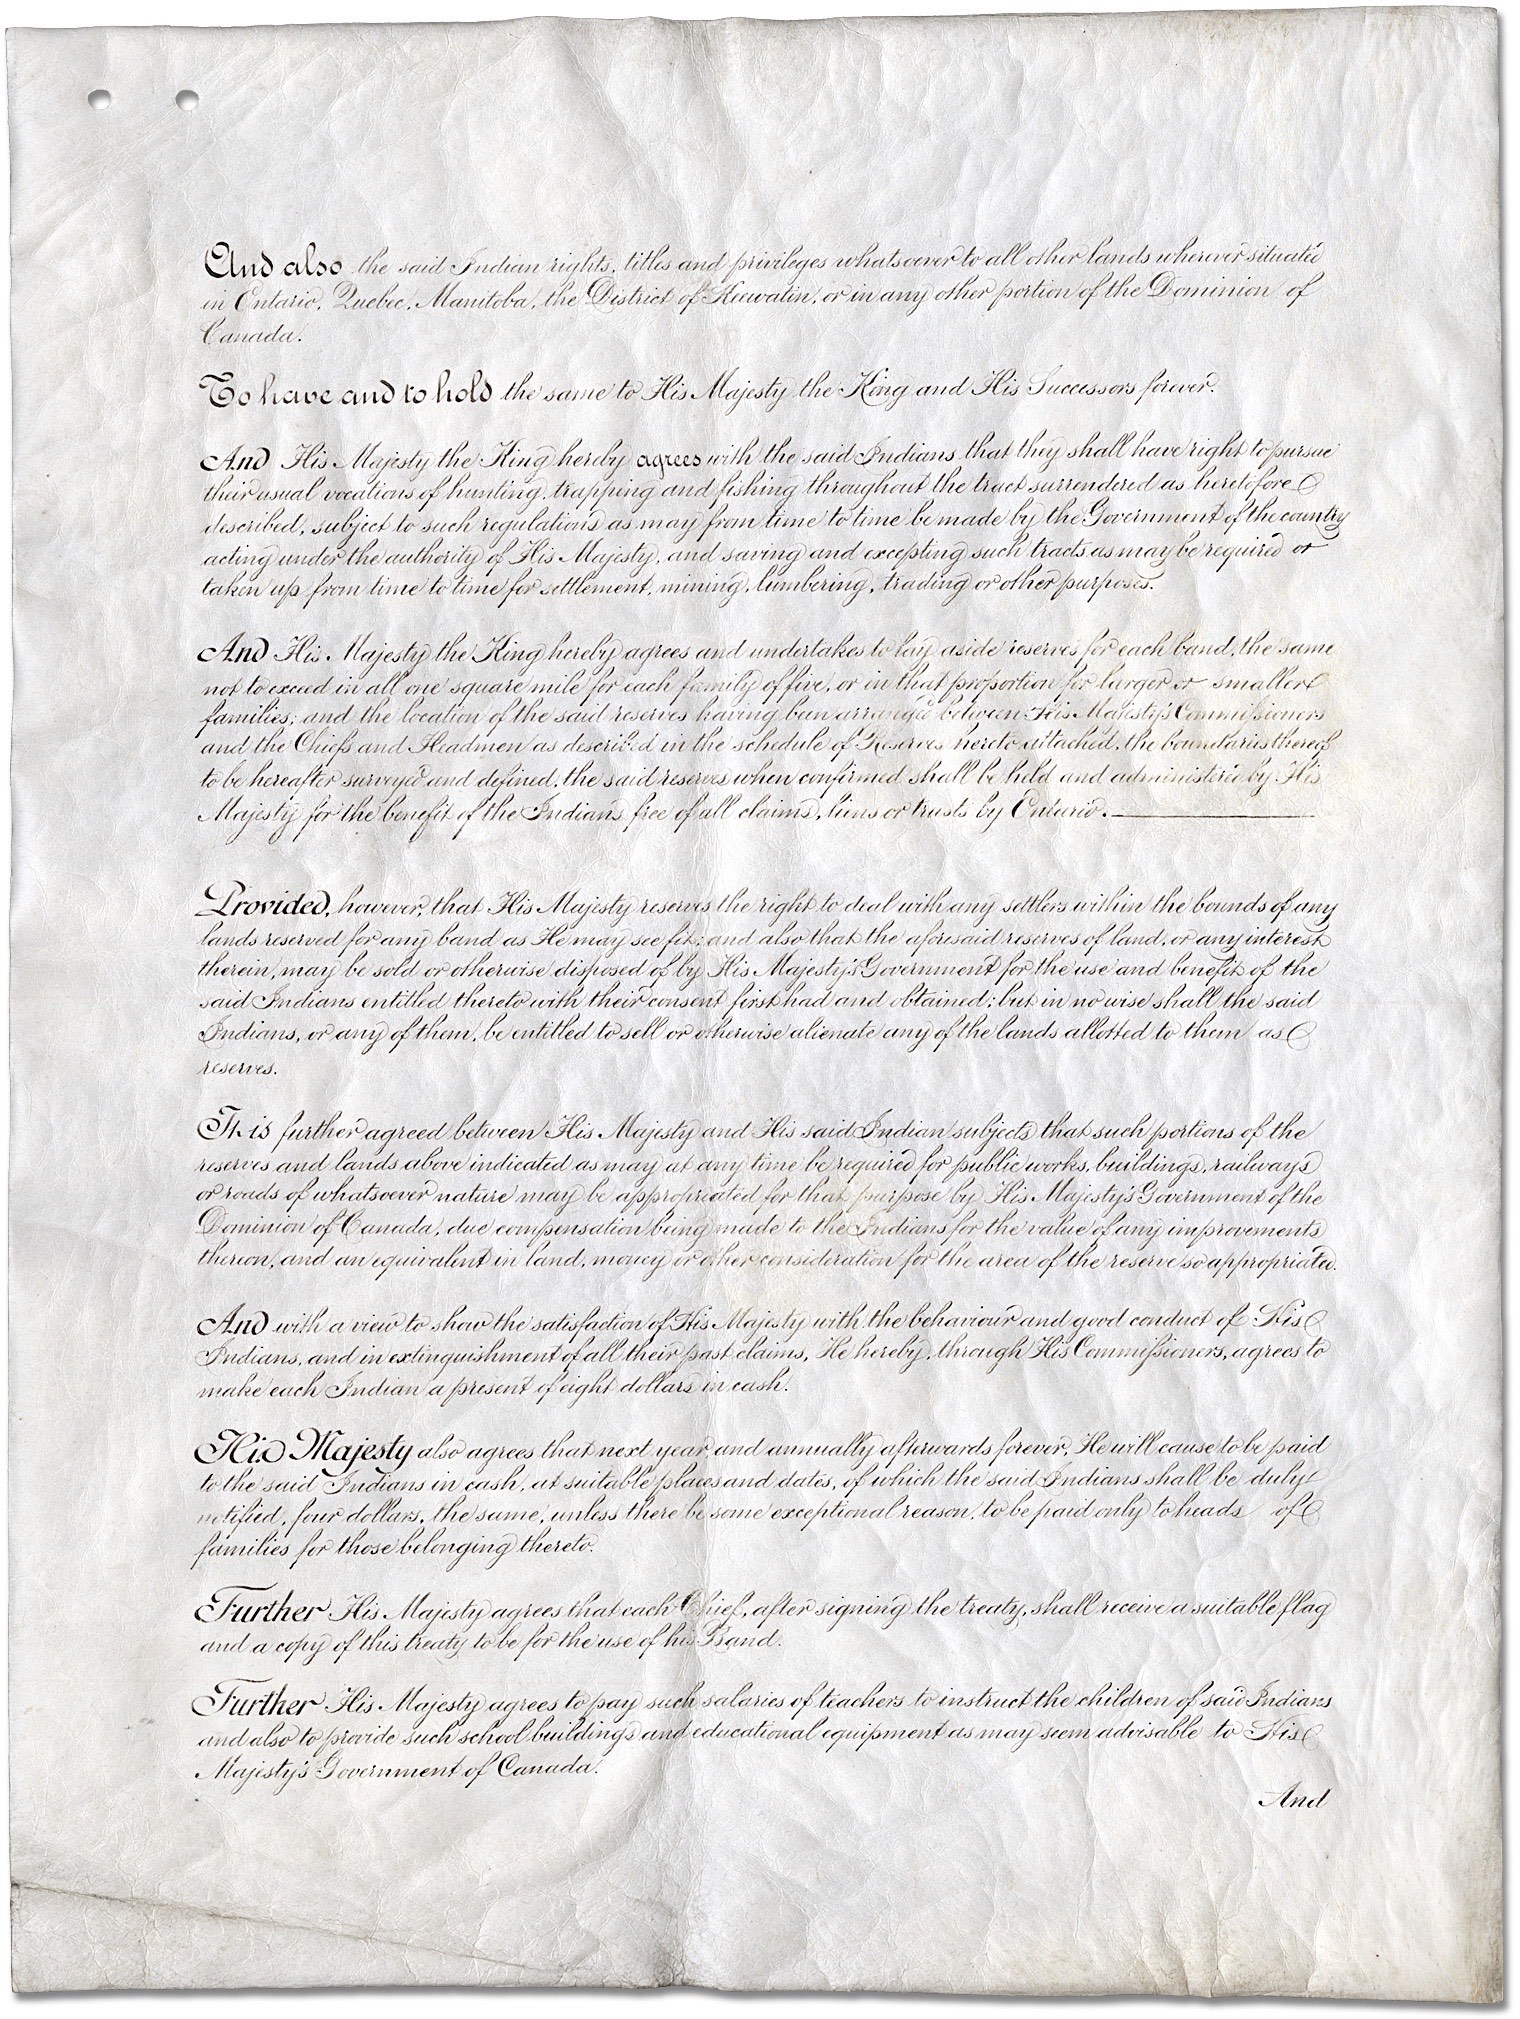 And also the said Indian rights, titles and privileges whatsoever to all other lands wherever situated
in Ontario, Quebec, Manitoba, the District of Keewatin, or in any other portion of the Dominion of
Canada.
To have and to hold the same to His Majesty the King and His Successors forever.
And His Majesty the King hereby agrees with the said Indians that they shall have right to pursue
their usual vocations of hunting, trapping and fishing throughout the tract surrendered as heretofore
described, subject to such regulations as may from time to time be made by the Government of the country
acting under the authority of His Majesty, and saving and excepting such tracts as may be required or
taken up from time to time for settlement, mining, lumbering, trading or other purposes.
And His Majesty the King hereby agrees and undertakes to lay aside reserves for each band, the same
not to exceed in all one square mile for each family of five, or in that proportion for larger or smaller
families; and the location of the said reserves having been arranged between His Majesty's Commissioners
and the Chiefs and Headmen as described in the schedule of Reserves hereto attached, the boundaries thereof
to be hereafter surveyed and defined, the said reserves when confirmed shall be held and administered by His
Majesty for the benefit of the Indians free of all claims, liens or trusts by Ontario.
Provided, however, that His Majesty reserves the right to deal with any settlers within the bounds of any
lands reserved for any band as He may see fit; and also that the aforesaid reserves of land, or any interest
therein, may be sold or otherwise disposed of by His Majesty's Government for the use and benefit of the
said Indians entitled thereto with their consent first had and obtained; but in no wise shall the said
Indians, or any of them, be entitled to sell or otherwise alienate any of the lands allotted to them as
reserves.
It is further agreed between His Majesty and His said Indian subjects that such portions of the
reserves and lands above indicated as may at any time be required for public works, buildings, railways
or roads of whatsoever nature may be appropriated for that purpose by His Majesty's Government of the
Dominion of Canada, due compensation being made to the Indians for the value of any improvements
thereon, and an equivalent in land, money or other consideration for the area of the reserve so appropriated.
And with a view to show the satisfaction of His Majesty with the behaviour and good conduct of His
Indians, and in extinguishment of all their past claims, He hereby, through His Commissioners, agrees to
make each Indian a present of eight dollars in cash.
His Majesty also agrees that next year, and annually afterwards forever, He will cause to be paid
to the said Indians in cash, at suitable places and dates, of which the said Indians shall be duly
notified, four dollars, the same, unless there be some exceptional reason, to be paid only to heads of
families for those belonging thereto.
Further His Majesty agrees that each Chief, after signing the treaty, shall receive a suitable flag
and a copy of this treaty to be for the use of his Band.
Further His Majesty agrees to pay such salaries of teachers to instruct the children of said Indians
and also to provide such school buildings and educational equipment as may seem advisable to His
Majesty's Government of Canada.
And